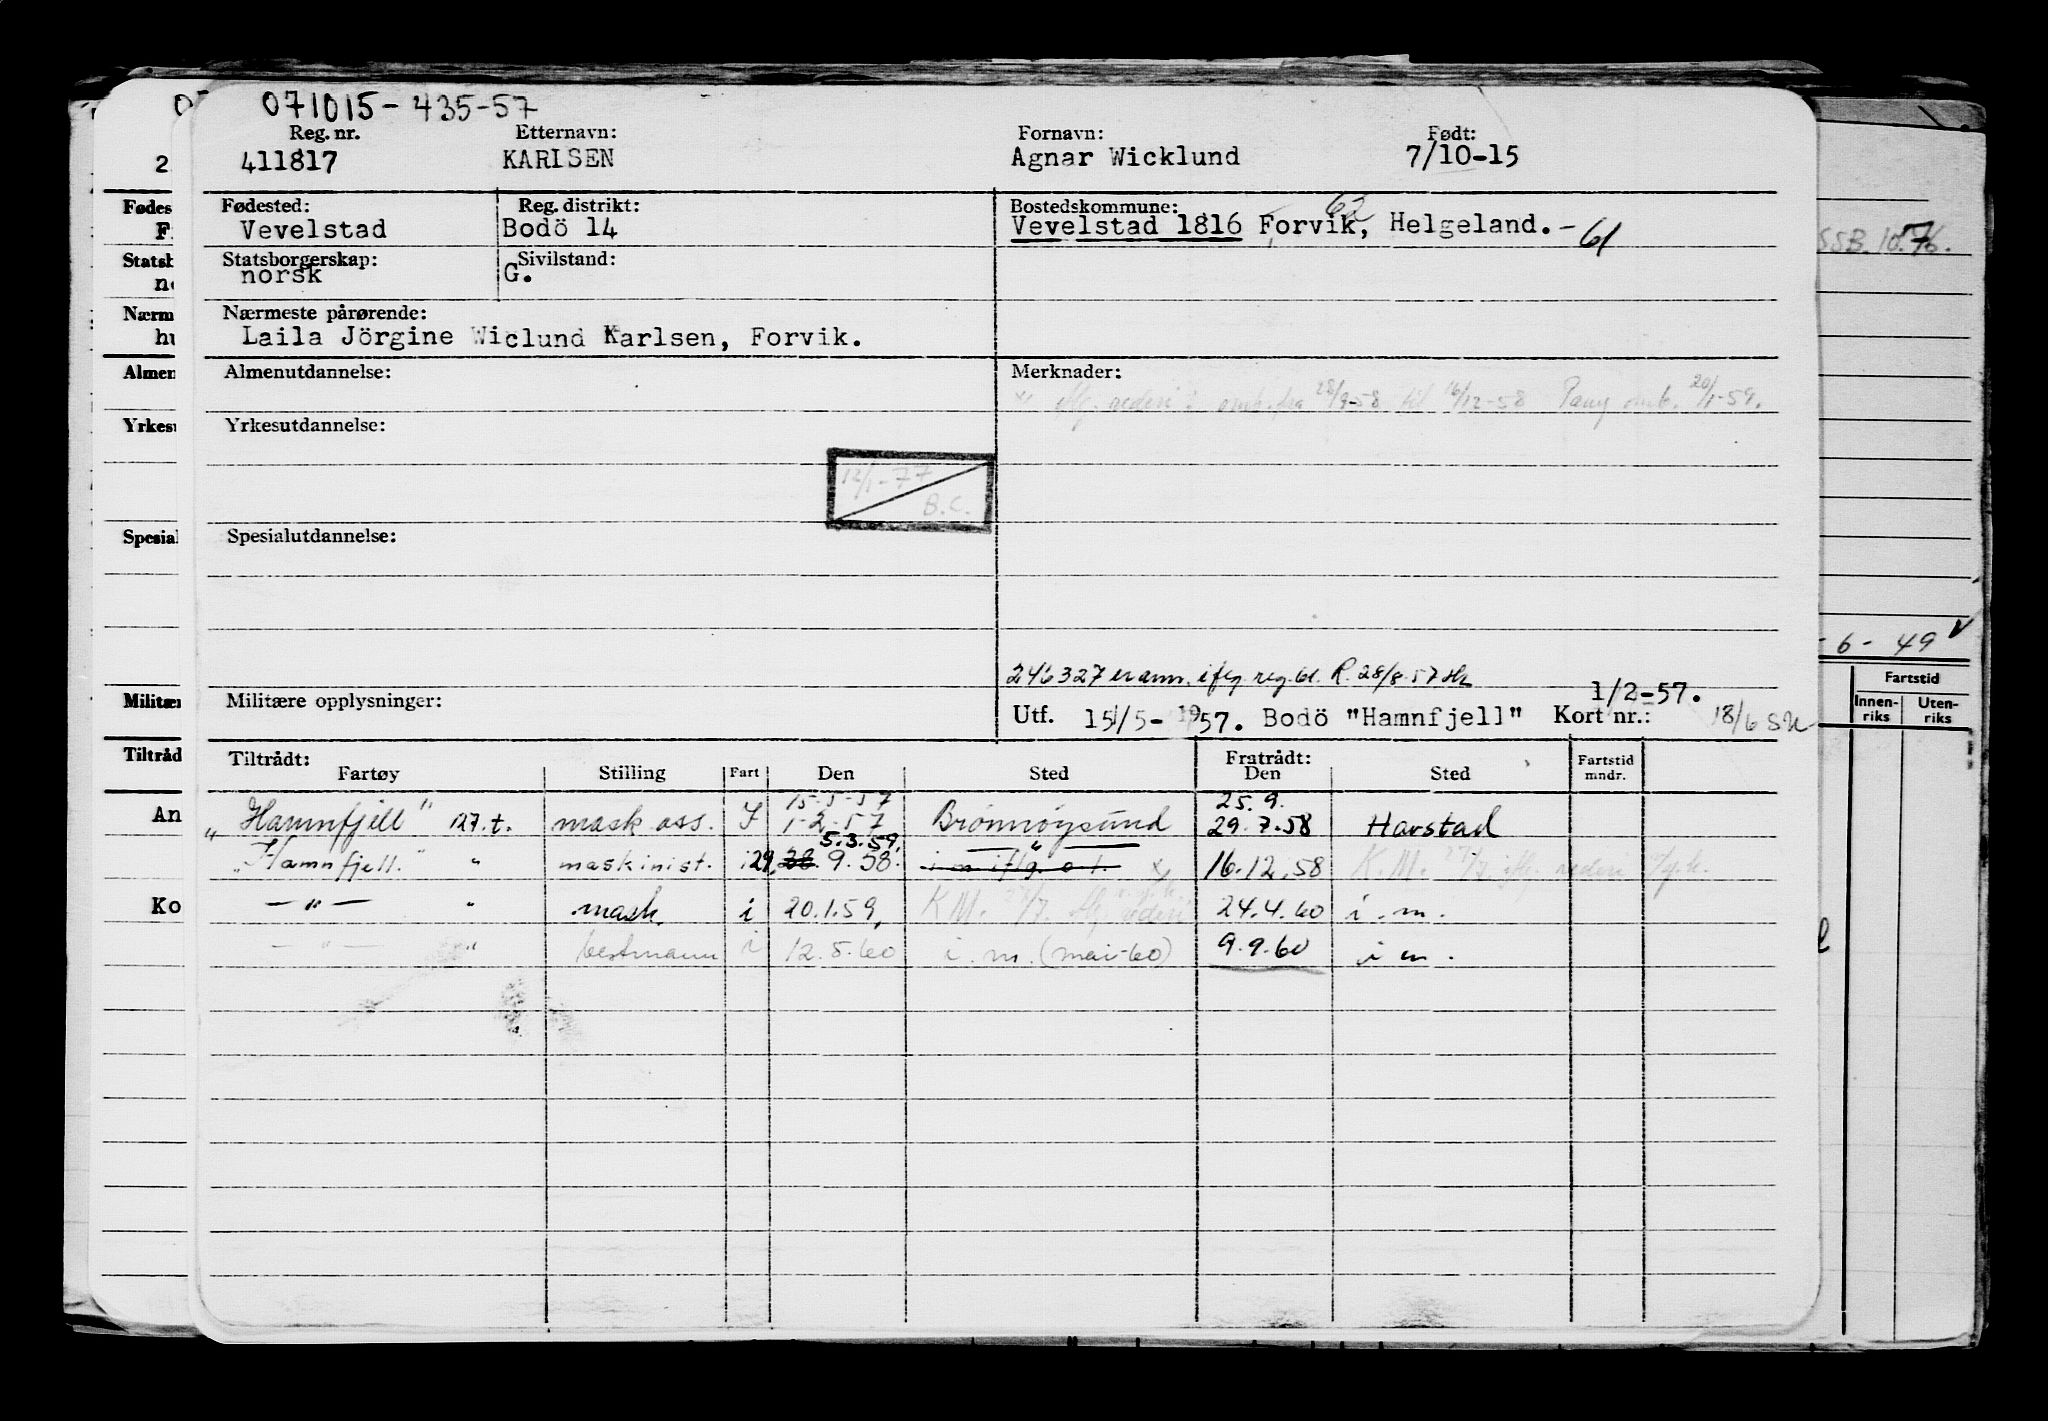 071015-435-57
Reg. nr. Etternavn: Fornavn: Født:
411817 KARLSEN Agnar Wicklund 7/10-15
Fødested: Reg. distrikt: Bostedskommune: 62
Vevelstad Bodö 14 Vevelstad 1816 Forvik, Helgeland. - 61
Statsborgerskap: Sivilstand:
norsk G.
Nærmeste pårørende:
Laila Jörgine Wiclund Karlsen, Forvik.
Almenutdannelse: Merknader:
x rederi: fra 28/9-58 til 16/12-58 20/1-59.
Yrkesutdannelse:
12/1-77
B.C.
Spesialutdannelse:
246327 er ann. iflg. reg.bl. R. 28/8-57
Militære opplysninger: 1/2-57.
Utf. 15/5-1957. Bodö "Hamnfjell" Kort nr.: 18/6
Tiltrådt: Fratrådt: Fartstid
Fartøy Stilling Fart Den Sted Den Sted mndr.
15-5-57 25.9.
"Hamnfjell" 127.t. mask ass. I 1-2-57 Brønnøysund 29.7.58 Harstad
5.3.59,
"Hamnfjell." " maskinist. i 29, 28. 9.58. — " — i m iflg. o.l. x 16.12.58 K.M. 27/7. iflg. rederi
— " — " mask. i 20.1.59, K.M. 27/7. iflg. rederi 24.4.60 i.m.
— " — " bestmann i 12.5.60 i.m. (mai-60) 9.9.60 i m.
SSB. 10.76.
- 6 - 49 v
Fartstid
Innen-riks Uten-riks
2
Fødes
F
Statsb
no
Nærm
hu
Almen
Yrkesu
Spesial
Militær
Tiltråd
An
Ko